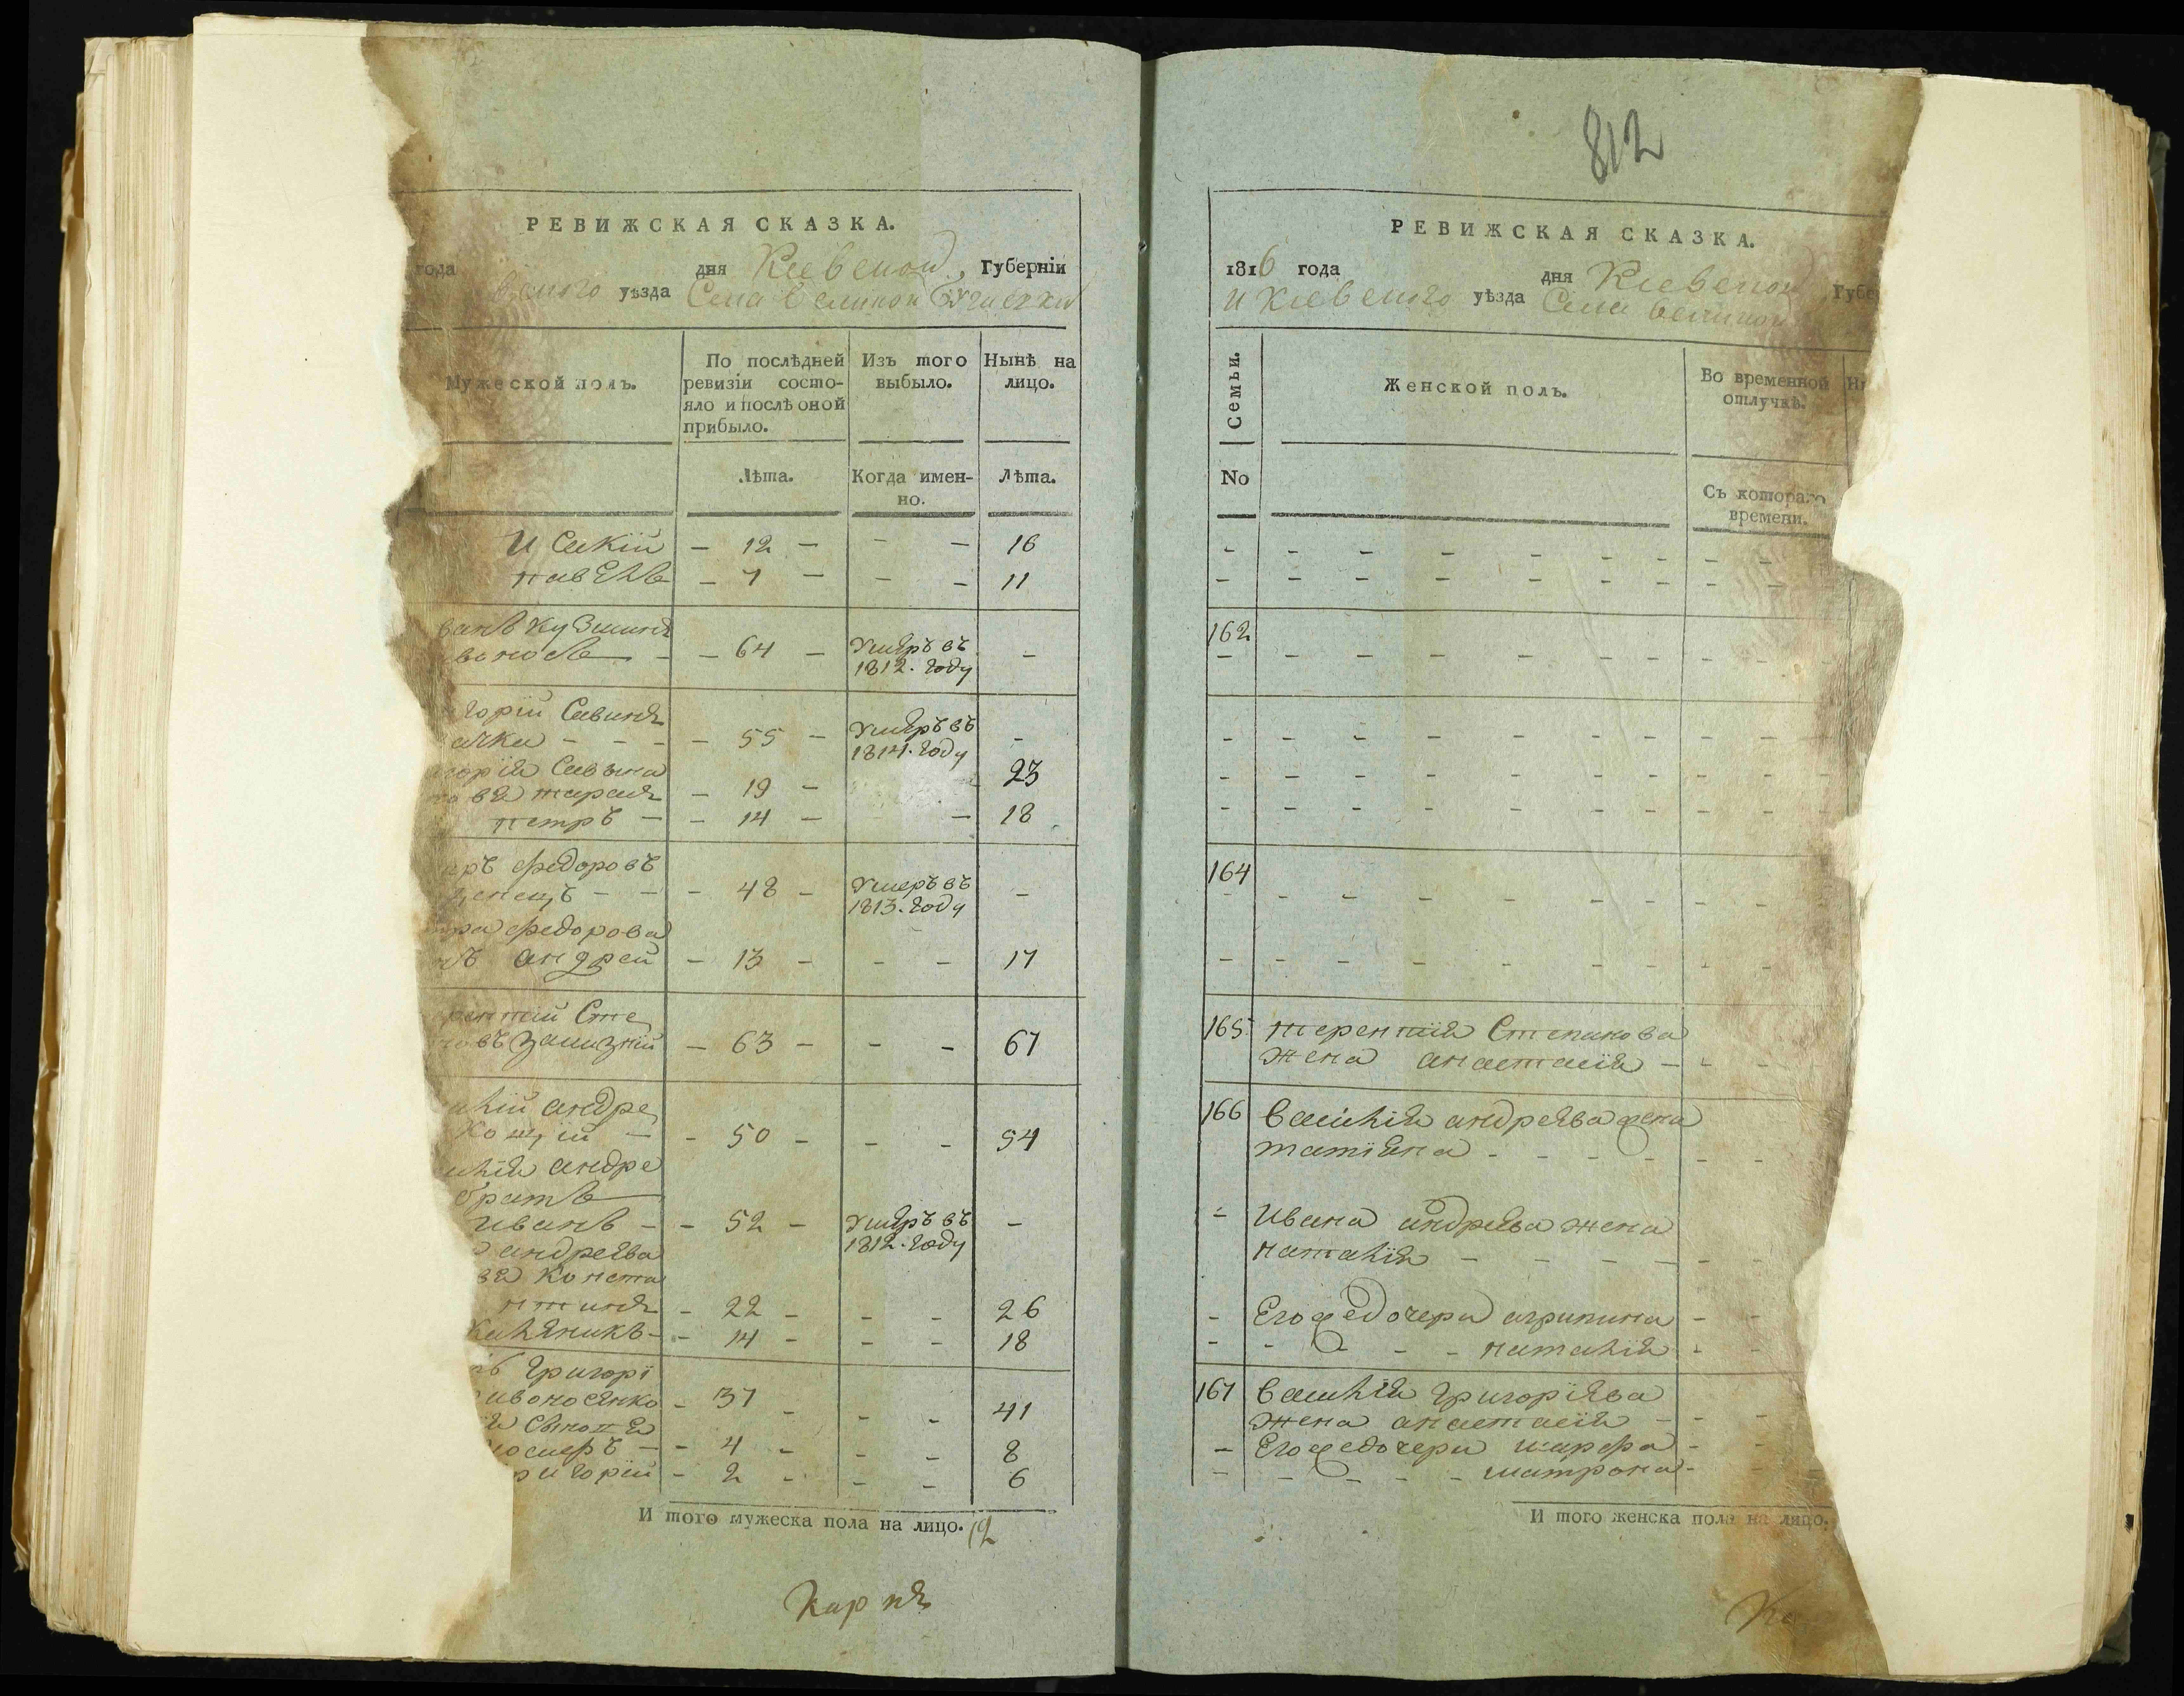 РЕВИЖСКАЯ СКАЗКА.
года дня Киевской Губерніи
вского уѣзда Села Великой
Мужеской полъ.
По послѣдней ревизіи состо-
яло и послѣ оной
прибыло.
Изъ того
выбыло.
Нынѣ на
лицо.
Лѣта.
Когда имен-
но.
Лѣта.
Исакій - 12 - - - 16
павелъ - 7 - - - 11
ванъ Кузминъ
воносъ - - 64 - умеръ въ 1812. году -
горій Савинъ
ачка - - - - 55 - умеръ въ 1814. году -
игорія Савина
ове тарасъ - 19 - 23
петръ - - 14 - - 18
аръ федоровъ
ценецъ - - - 48 - умеръ въ 1813. году -
ра федорова
нъ андрей - 13 - - - 17
рентій Сте
овъ Зализній - 63 - - - 67
илій андре
Коцій - - 50 - - - 54
илія андре
братъ
иванъ - - 52 - умеръ въ 1812. году -
андреева
ве Конста
нтинъ - 22 - - - 26
Калѣникъ - - 14 - - - 18
ъ григорі
ивоносенко - 37 - - - 41
я сыновя
осифъ - - 4 - - - 8
ригорій - 2 - - - 6
И того мужеска пола на лицо. 12
Карпъ
812
РЕВИЖСКАЯ СКАЗКА.
1816 года дня Киевской Губе
и Киевского уѣзда Села Великой
Семьи.
Женской полъ.
Во временной
отлучкѣ.
Ны
No
Съ котораго
времени.
162
164
165 терентія Степанова
жена анастасія -
166 василія андреева жена
татіяна - - - -
- Ивана андреева жена
наталія - - - -
- Егожедочери агрипина -
- - - - наталія -
167 василія григоріева
жена анастасія -
- Егожедочери марфа -
- - - - матрона -
И того женска пола на лицо.
Ка